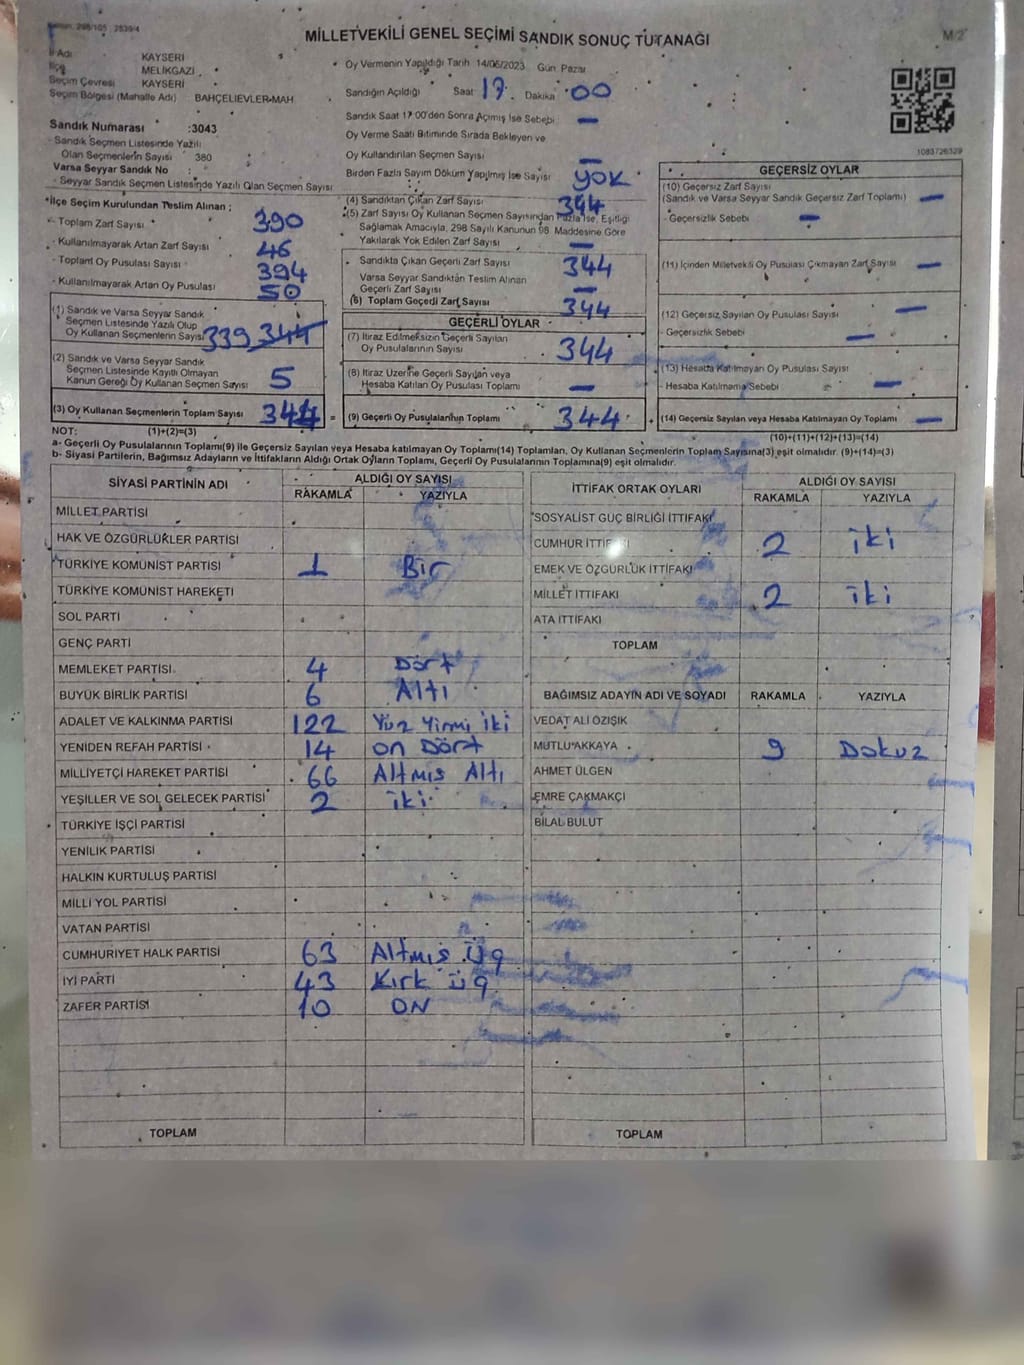 MİLLETVEKİLİ GENEL SEÇİMİ SANDIK SONUÇ TUTANAĞI
M/2
İl Adı KAYSERİ
İlçe MELİKGAZİ
Seçim Çevresi KAYSERİ
Seçim Bölgesi (Mahalle Adı) BAHÇELİEVLER MAH
Sandık Numarası :3043
- Sandık Seçmen Listesinde Yazılı
Olan Seçmenlerin Sayısı 380
Varsa Seyyar Sandık No :
- Seyyar Sandık Seçmen Listesinde Yazılı Olan Seçmen Sayısı
Oy Vermenin Yapıldığı Tarih 14/05/2023 Gün Pazar
Sandığın Açıldığı Saat 17 Dakika 00
Sandık Saat 17:00'den Sonra Açımış İse Sebebi —
Oy Verme Saati Bitiminde Sırada Bekleyen ve
Oy Kullandırılan Seçmen Sayısı —
Birden Fazla Sayım Döküm Yapılmış İse Sayısı YOK
1083726329
*İlçe Seçim Kurulundan Teslim Alınan ;
- Toplam Zarf Sayısı 390
- Kullanılmayarak Artan Zarf Sayısı 46
- Toplam Oy Pusulası Sayısı 394
- Kullanılmayarak Artan Oy Pusulası 50
(1) Sandık ve Varsa Seyyar Sandık
Seçmen Listesinde Yazılı Olup
Oy Kullanan Seçmenlerin Sayısı 339 344
(2) Sandık ve Varsa Seyyar Sandık
Seçmen Listesinde Kayıtlı Olmayan
Kanun Gereği Oy Kullanan Seçmen Sayısı 5
(3) Oy Kullanan Seçmenlerin Toplam Sayısı 344
(4) Sandıktan Çıkan Zarf Sayısı 344
(5) Zarf Sayısı Oy Kullanan Seçmen Sayısından Fazla İse, Eşitliği
Sağlamak Amacıyla, 298 Sayılı Kanunun 98. Maddesine Göre
Yakılarak Yok Edilen Zarf Sayısı —
Sandıkta Çıkan Geçerli Zarf Sayısı 344
Varsa Seyyar Sandıktan Teslim Alınan
Geçerli Zarf Sayısı —
(6) Toplam Geçerli Zarf Sayısı 344
GEÇERLİ OYLAR
(7) İtiraz Edilmeksizin Geçerli Sayılan
Oy Pusulalarının Sayısı 344
(8) İtiraz Üzerine Geçerli Sayılan veya
Hesaba Katılan Oy Pusulası Toplamı —
= (9) Geçerli Oy Pusulalarının Toplamı 344
GEÇERSİZ OYLAR
(10) Geçersiz Zarf Sayısı
(Sandık ve Varsa Seyyar Sandık Geçersiz Zarf Toplamı) —
- Geçersizlik Sebebi —
(11) İçinden Milletvekili Oy Pusulası Çıkmayan Zarf Sayısı —
(12) Geçersiz Sayılan Oy Pusulası Sayısı —
- Geçersizlik Sebebi —
(13) Hesaba Katılmayan Oy Pusulası Sayısı
- Hesaba Katılmama Sebebi —
+ (14) Geçersiz Sayılan veya Hesaba Katılmayan Oy Toplamı —
NOT: (1)+(2)=(3) (10)+(11)+(12)+(13)=(14)
a- Geçerli Oy Pusulalarının Toplamı(9) ile Geçersiz Sayılan veya Hesaba katılmayan Oy Toplamı(14) Toplamları, Oy Kullanan Seçmenlerin Toplam Sayısına(3) eşit olmalıdır. (9)+(14)=(3)
b- Siyasi Partilerin, Bağımsız Adayların ve İttifakların Aldığı Ortak Oyların Toplamı, Geçerli Oy Pusulalarının Toplamına(9) eşit olmalıdır.
SİYASİ PARTİNİN ADI ALDIĞI OY SAYISI
RAKAMLA YAZIYLA
MİLLET PARTİSİ
HAK VE ÖZGÜRLÜKLER PARTİSİ
TÜRKİYE KOMÜNİST PARTİSİ 1 Bir
TÜRKİYE KOMÜNİST HAREKETİ
SOL PARTİ
GENÇ PARTİ
MEMLEKET PARTİSİ 4 Dört
BÜYÜK BİRLİK PARTİSİ 6 Altı
ADALET VE KALKINMA PARTİSİ 122 Yüz Yirmi iki
YENİDEN REFAH PARTİSİ 14 on Dört
MİLLİYETÇİ HAREKET PARTİSİ 66 Altmış Altı
YEŞİLLER VE SOL GELECEK PARTİSİ 2 iki
TÜRKİYE İŞÇİ PARTİSİ
YENİLİK PARTİSİ
HALKIN KURTULUŞ PARTİSİ
MİLLİ YOL PARTİSİ
VATAN PARTİSİ
CUMHURİYET HALK PARTİSİ 63 Altmış Üç
İYİ PARTİ 43 Kırk üç
ZAFER PARTİSİ 10 ON
TOPLAM
İTTİFAK ORTAK OYLARI ALDIĞI OY SAYISI
RAKAMLA YAZIYLA
SOSYALİST GÜÇ BİRLİĞİ İTTİFAKI
CUMHUR İTTİF I 2 iki
EMEK VE ÖZGÜRLÜK İTTİFAKI
MİLLET İTTİFAKI 2 iki
ATA İTTİFAKI
TOPLAM
BAĞIMSIZ ADAYIN ADI VE SOYADI RAKAMLA YAZIYLA
VEDAT ALİ ÖZIŞIK
MUTLU AKKAYA 9 Dokuz
AHMET ÜLGEN
EMRE ÇAKMAKÇI
BİLAL BULUT
TOPLAM